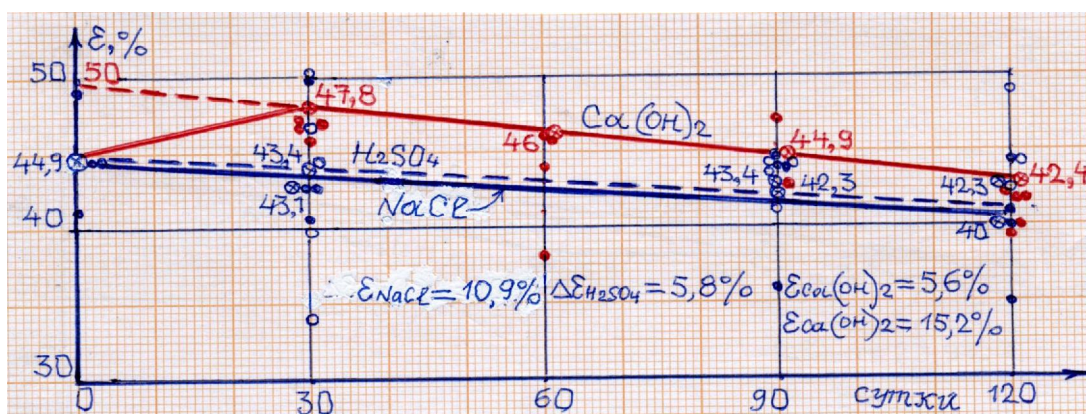 ε,%
50 50
47,8
Ca(OH)2
46
44,9
44,9 43,4 H2SO4 43,4 42,3 42,3 42,4
43,1 NaCl
40 40
εNaCl=10,9% ΔεH2SO4=5,8% εCa(OH)2=5,6%
εCa(OH)2=15,2%
30
0 30 60 90 сутки 120